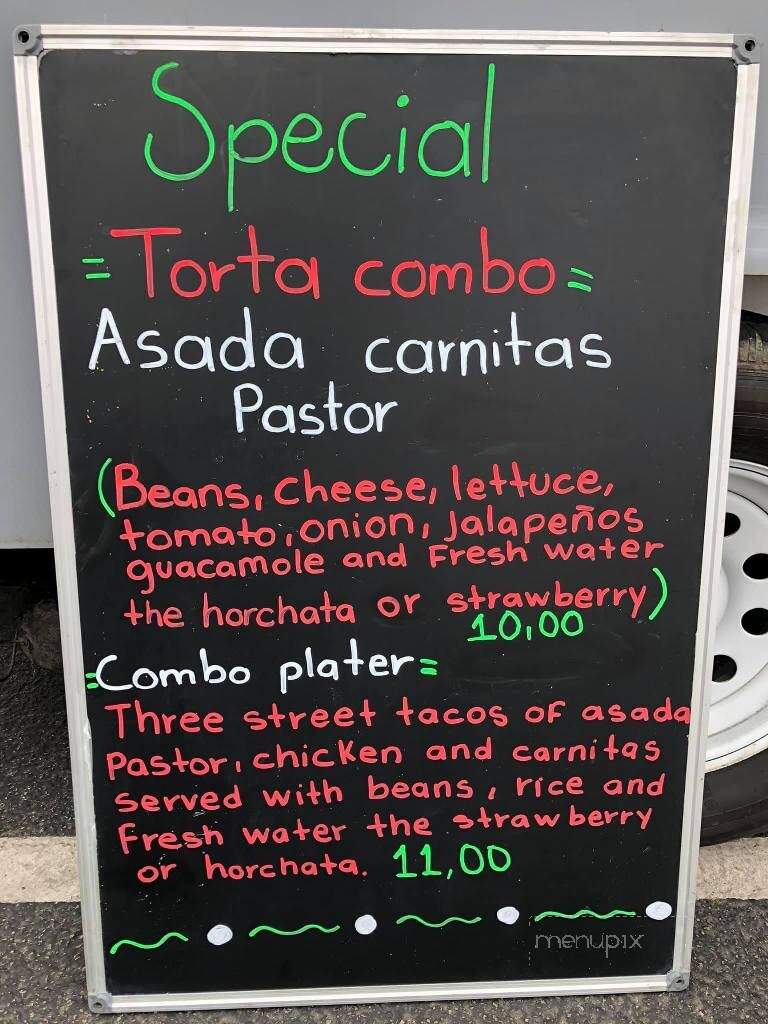 Special
=Torta combo=
Asada carnitas
Pastor
(Beans, cheese, lettuce,
tomato, onion, Jalapeños
guacamole and Fresh water
the horchata or strawberry)
10,00
=Combo plater=
Three street tacos of asada
Pastor, chicken and carnitas
served with beans, rice and
Fresh water the strawberry
or horchata. 11,00
menupix